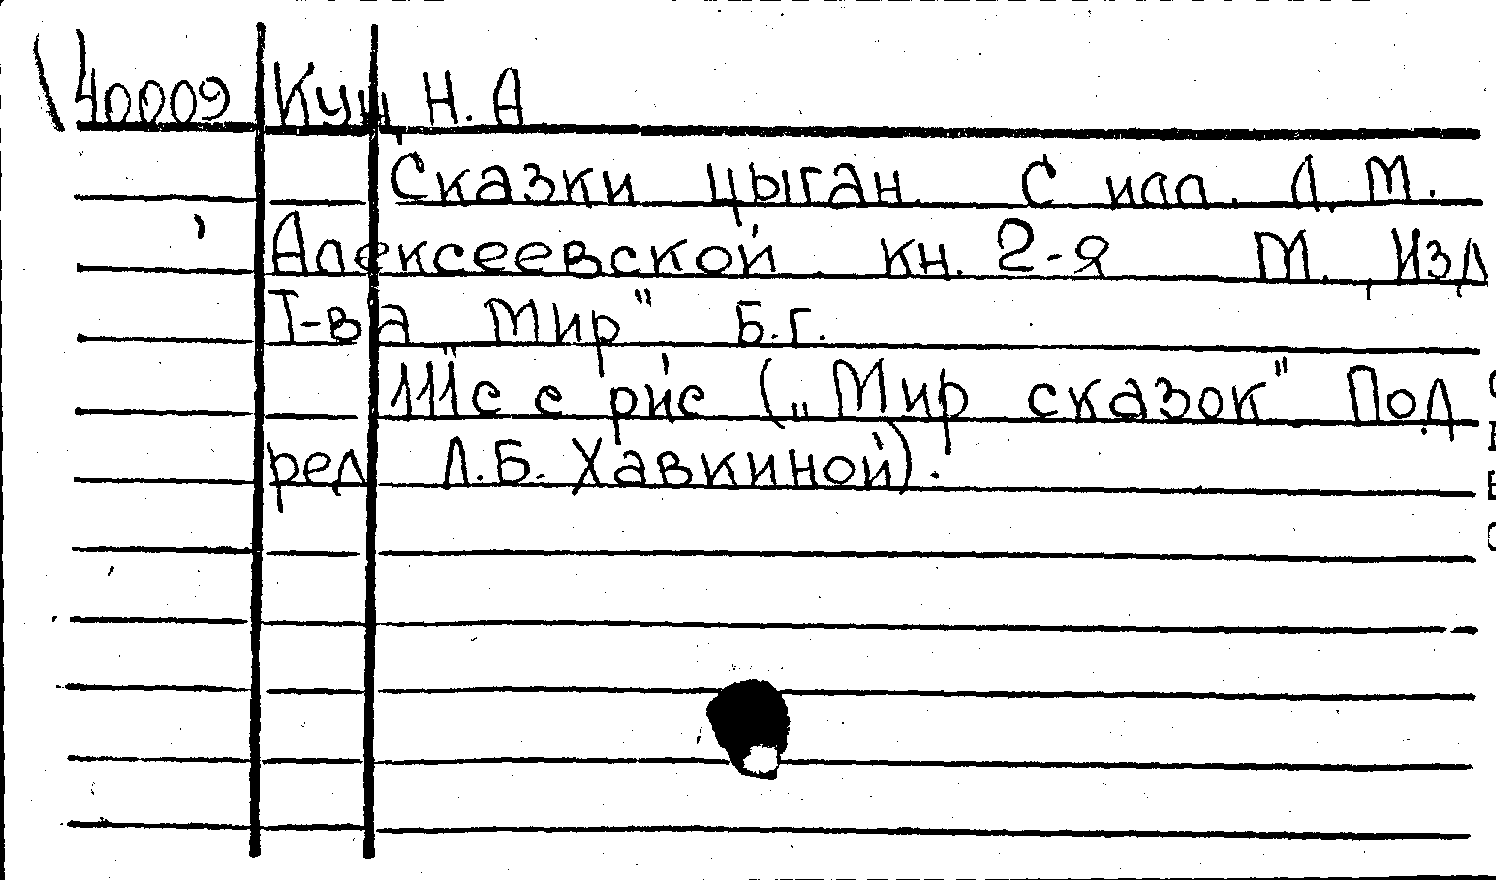 40009 Кун Н. А
Сказки цыган. С илл. А. М.
Алексеевской. кн. 2-я М., Изд
Т-ва „Мир" Б.г.
111с с рис („Мир сказок" Под
ред Л.Б. Хавкиной).